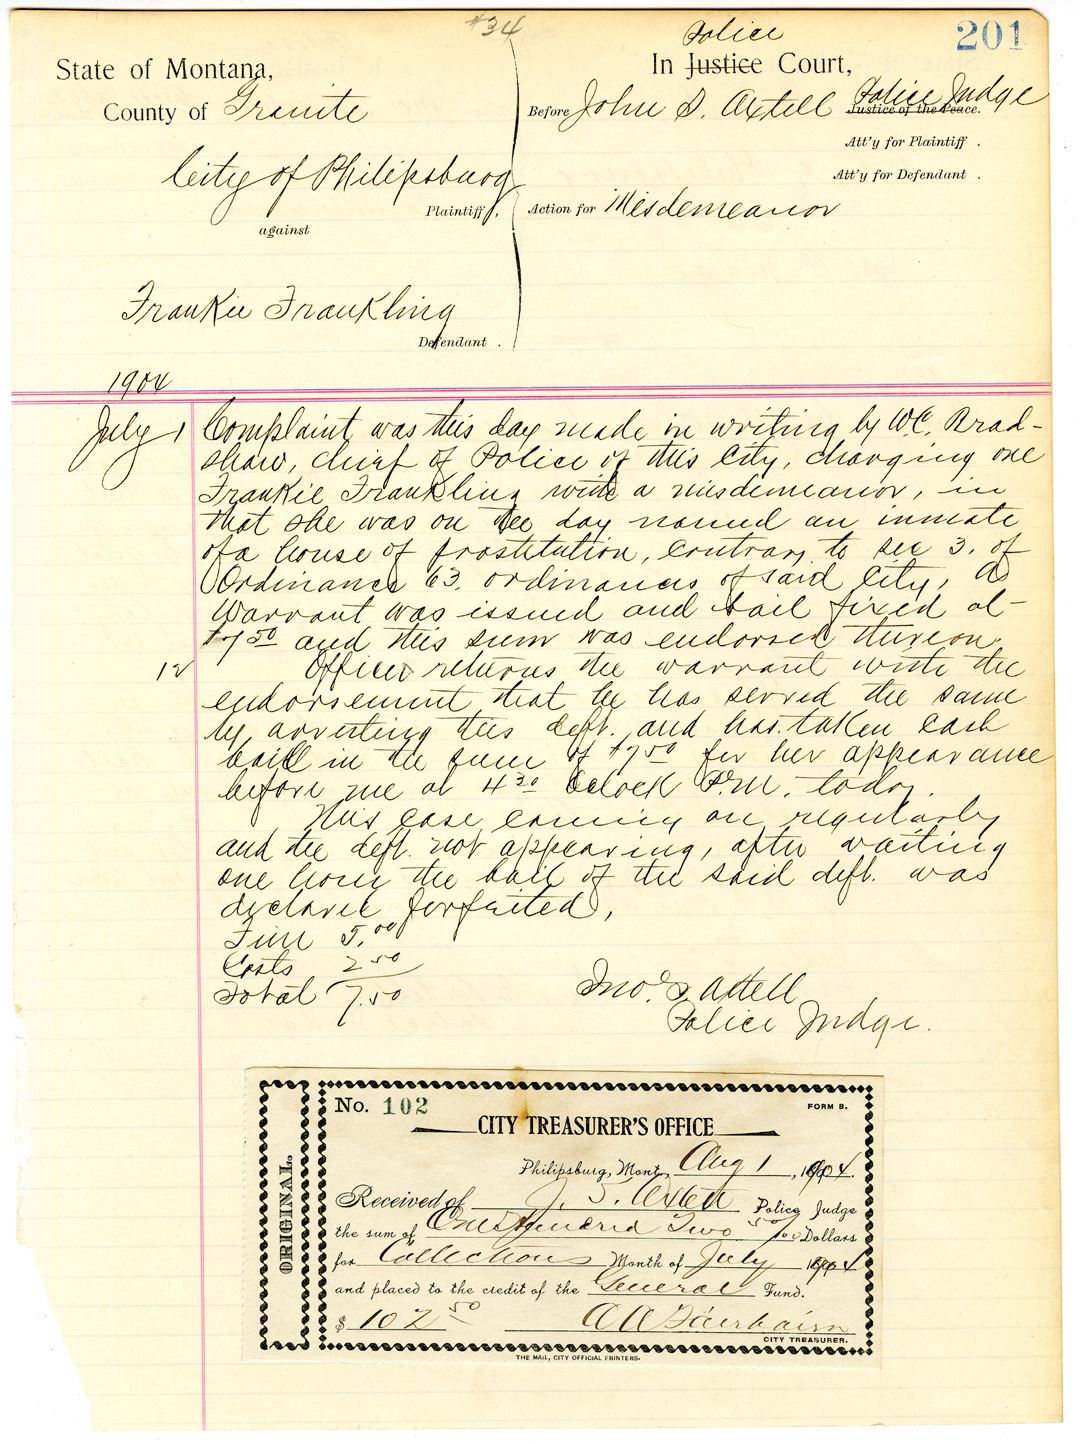 #34
201
State of Montana,
County of Granite
City of Philipsburg
Plaintiff,
against
Frankie Frankling
Defendant .
Police
In Justice Court,
Before John S. Axtell Police Judge
Justice of the Peace.
Att'y for Plaintiff .
Att'y for Defendant .
Action for Misdemeanor
1904
July 1 Complaint was this day made in writing by W.C. Brad-
shaw, chief of Police of this City, charging one
Frankie Frankling with a misdemeanor, in
that she was on the day named an inmate
of a house of prostitution, contrary to sec 3. of
Ordinance 63. ordinances of said City, a
Warrant was issued and bail fixed at
$7 50 and this sum was endorsed thereon.
12 Officer returns the warrant with the
endorsement that he has served the same
by arresting this deft. and has taken cash
bail in the sum of $7 50 for her appearance
before me at 4 30 Oclock P.M. today.
This case coming on regularly
and the deft. not appearing, after waiting
one hour the bail of the said deft. was
declared forfeited,
Fine 5.00
Costs 2 50
Total 7.50
Jno. S. Axtell
Police Judge.
ORIGINAL.
No. 102
FORM B.
CITY TREASURER'S OFFICE
Philipsburg, Mont., Aug 1, 1904.
Received of J. S. Axtell Police Judge
the sum of One Hundred Two 50/100 Dollars
for Collections Month of July 1904
and placed to the credit of the General Fund.
$ 102 50 A A Fairbairn
CITY TREASURER.
THE MAIL, CITY OFFICIAL PRINTERS.